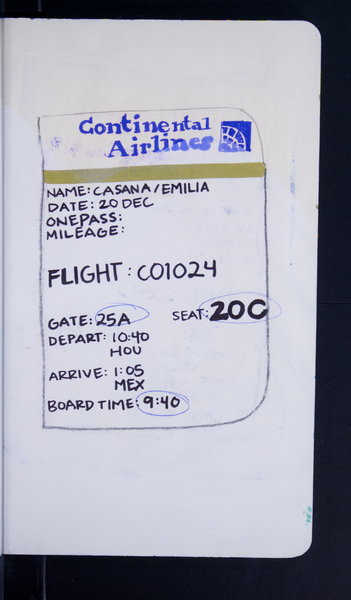 Continental
Airlines
NAME: CASANA/EMILIA
DATE: 20 DEC
ONEPASS:
MILEAGE:
FLIGHT: CO1024
GATE: 25A SEAT: 20C
DEPART: 10:40
HOU
ARRIVE: 1:05
MEX
BOARD TIME: 9:40